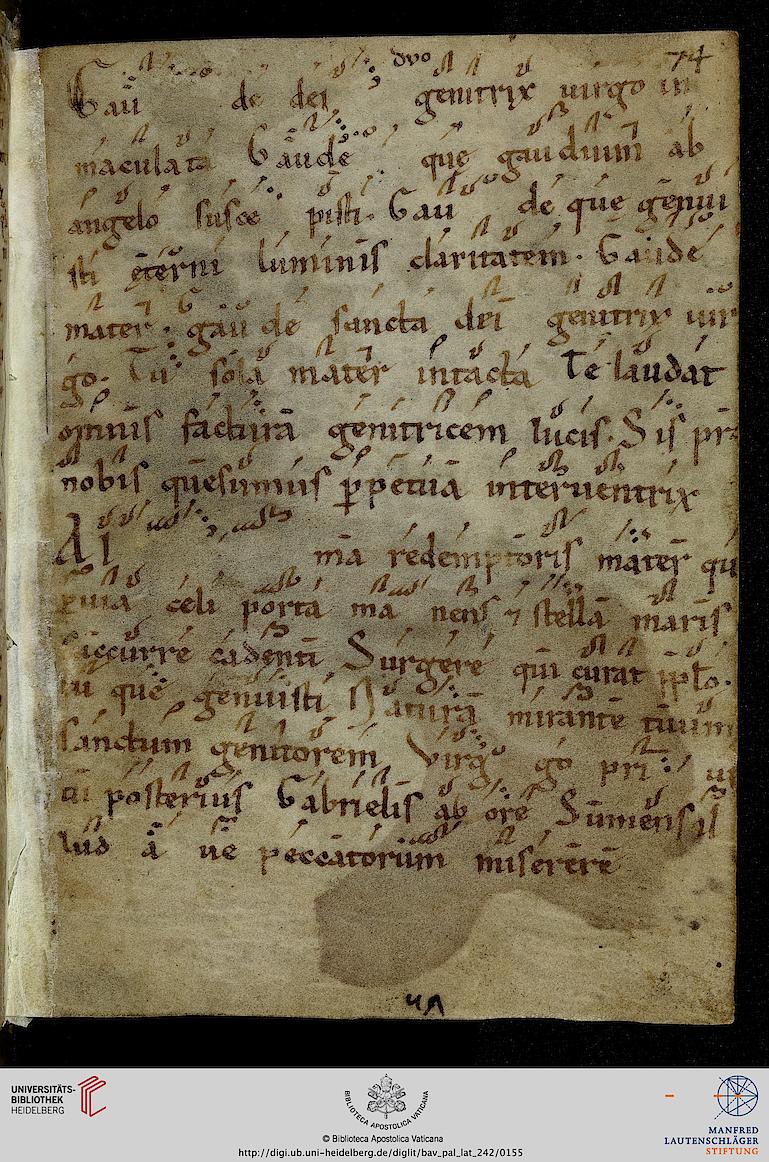 dvo 74
Gau de dei genitrix uirgo in
maculata Gaude que gaudium ab
angelo susce pisti. Gau de que genui
sti eterni luminis claritatem. Gaude
mater. gau de sancta dei genitrix uir
go. Tu sola mater intacta Te laudat
omnis factura genitricem lucis. Sis pr
nobis quesumus ꝑpetua interuentrix
Al ma redemptoris mater qu
ꝑuia celi porta ma nens ⁊ stella maris
succurre cadenti Surgere qui curat ppl̅o.
tu que genuisti Natura mirante tuum
sanctum genitorem Virg go pri us
ac posterius Gabrielis ab ore Sumens il
lud a ue peccatorum miserere
UNIVERSITÄTS-
BIBLIOTHEK
HEIDELBERG
BIBLIOTECA APOSTOLICA VATICANA
© Biblioteca Apostolica Vaticana
http://digi.ub.uni-heidelberg.de/diglit/bav_pal_lat_242/0155
MANFRED
LAUTENSCHLÄGER
STIFTUNG